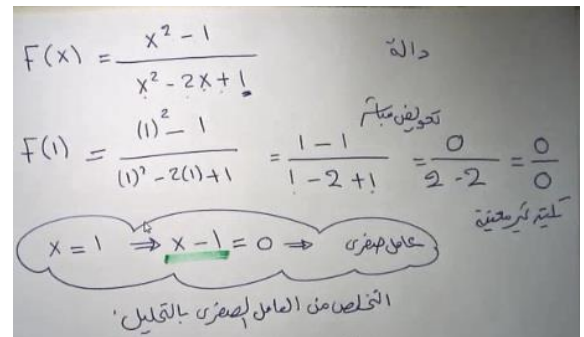 F(x) = (x² - 1) / (x² - 2x + 1) دالة
تعويض مباشر
F(1) = ((1)² - 1) / ((1)² - 2(1) + 1) = (1 - 1) / (1 - 2 + 1) = 0 / (2 - 2) = 0 / 0
كمية غير معينة
x = 1 ⇒ x - 1 = 0 ⇒ عامل صفري
التخلص من العامل الصفرى بالتحليل.